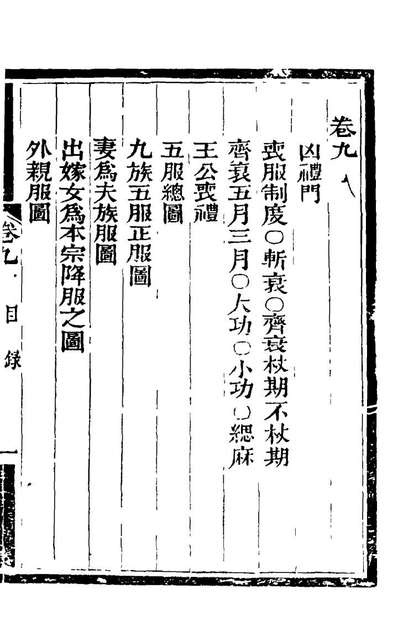 卷九
凶禮門
喪服制度○斬衰○齊衰杖期不杖期
齊衰五月三月○大功○小功○緦麻
王公喪禮
五服總圖
九族五服正服圖
妻爲夫族服圖
出嫁女爲本宗降服之圖
外親服圖
卷九 目錄 一